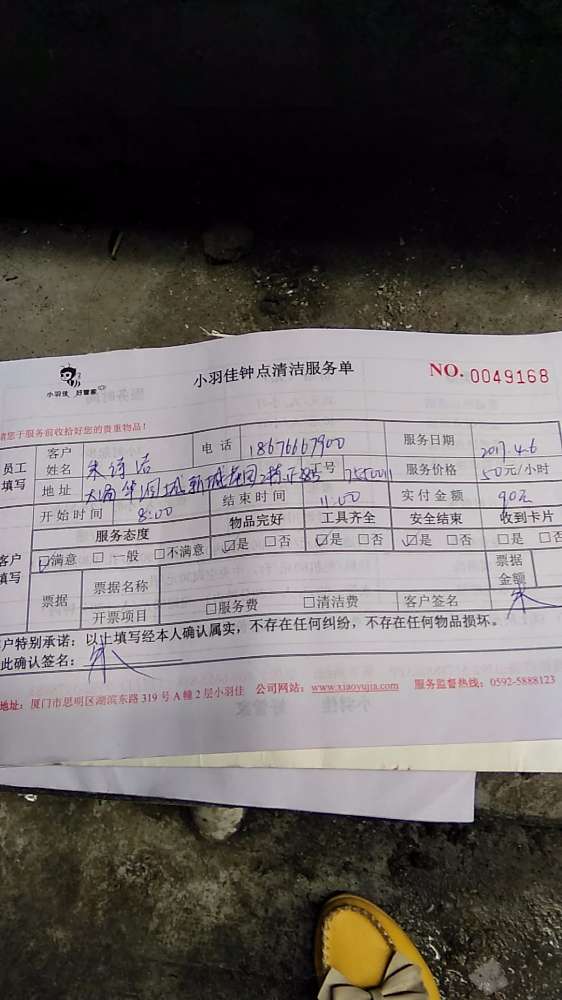 小羽佳 好管家
小羽佳钟点清洁服务单
NO. 0049168
请您于服务前收拾好您的贵重物品!
员工填写
客户姓名 朱诗洁 电话 18676667900 服务日期 2017.4.6
地址 号 服务价格 50元/小时
开始时间 8:00 结束时间 11:00 实付金额 90元
客户填写
服务态度 物品完好 工具齐全 安全结束 收到卡片
☑满意 □一般 □不满意 ☑是 □否 ☑是 □否 ☑是 □否 □是 □否
票据 票据名称 票据金额
开票项目 □服务费 □清洁费 客户签名 朱
客户特别承诺:以上填写经本人确认属实,不存在任何纠纷,不存在任何物品损坏。
此确认签名:
地址:厦门市思明区湖滨东路 319 号 A 幢 2 层小羽佳 公司网站:www.xiaoyujia.com 服务监督热线:0592-5888123